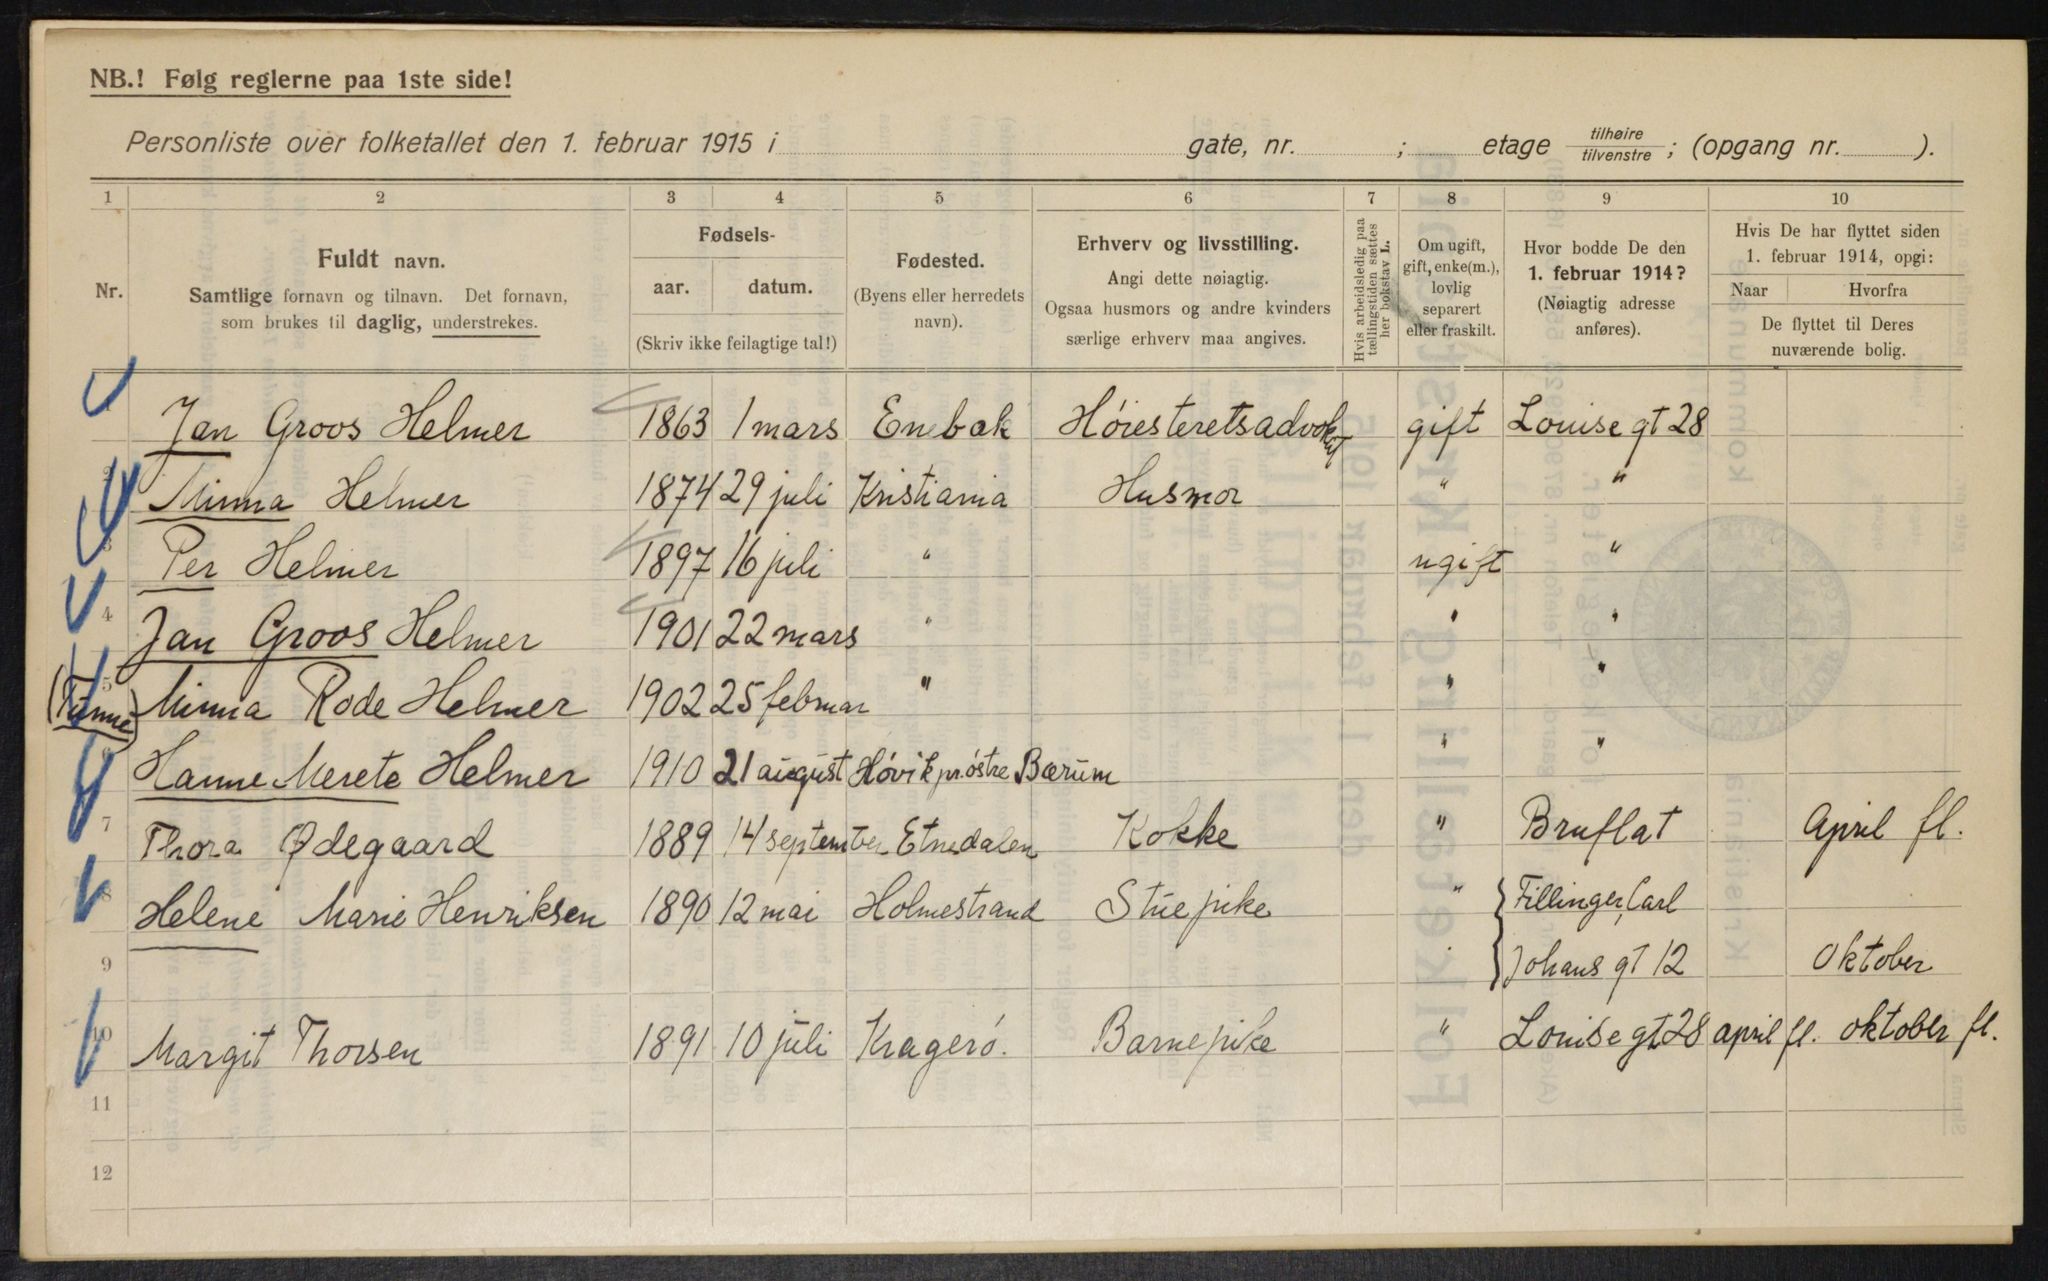 NB.! Følg reglerne paa 1ste side!
Personliste over folketallet den 1. februar 1915 i gate, nr. ; etage tilhøire / tilvenstre ; (opgang nr. ).
1 2 3 4 5 6 7 8 9 10
Nr.
Fuldt navn.
Samtlige fornavn og tilnavn. Det fornavn,
som brukes til daglig, understrekes.
Fødsels-
aar. datum.
(Skriv ikke feilagtige tal!)
Fødested.
(Byens eller herredets
navn).
Erhverv og livsstilling.
Angi dette nøiagtig.
Ogsaa husmors og andre kvinders
særlige erhverv maa angives.
Hvis arbeidsledig paa
tællingstiden sættes
her bokstav L.
Om ugift,
gift, enke(m.),
lovlig
separert
eller fraskilt.
Hvor bodde De den
1. februar 1914?
(Nøiagtig adresse
anføres).
Hvis De har flyttet siden
1. februar 1914, opgi:
Naar Hvorfra
De flyttet til Deres
nuværende bolig.
1 Jan Groos Helmer 1863 1 mars Enebak Høiesteretsadvokat gift Louise gt 28
2 Minna Helmer 1874 29 juli Kristiania Husmor " "
3 Per Helmer 1897 16 juli " ugift "
4 Jan Groos Helmer 1901 22 mars " " "
5 Minna Rode Helmer 1902 25 februar " " "
6 Hanne Merete Helmer 1910 21 august Høvik pr. østre Bærum " "
7 Thora Ødegaard 1889 14 september Etnedalen Kokke " Bruflat April fl.
8 Helene Marie Henriksen 1890 12 mai Holmestrand Stuepike " Fillinger, Carl
9 Johans gt 12 Oktober
10 Margit Thorsen 1891 10 juli Kragerø. Barnepike " Louise gt 28 april fl. oktober fl.
11
12